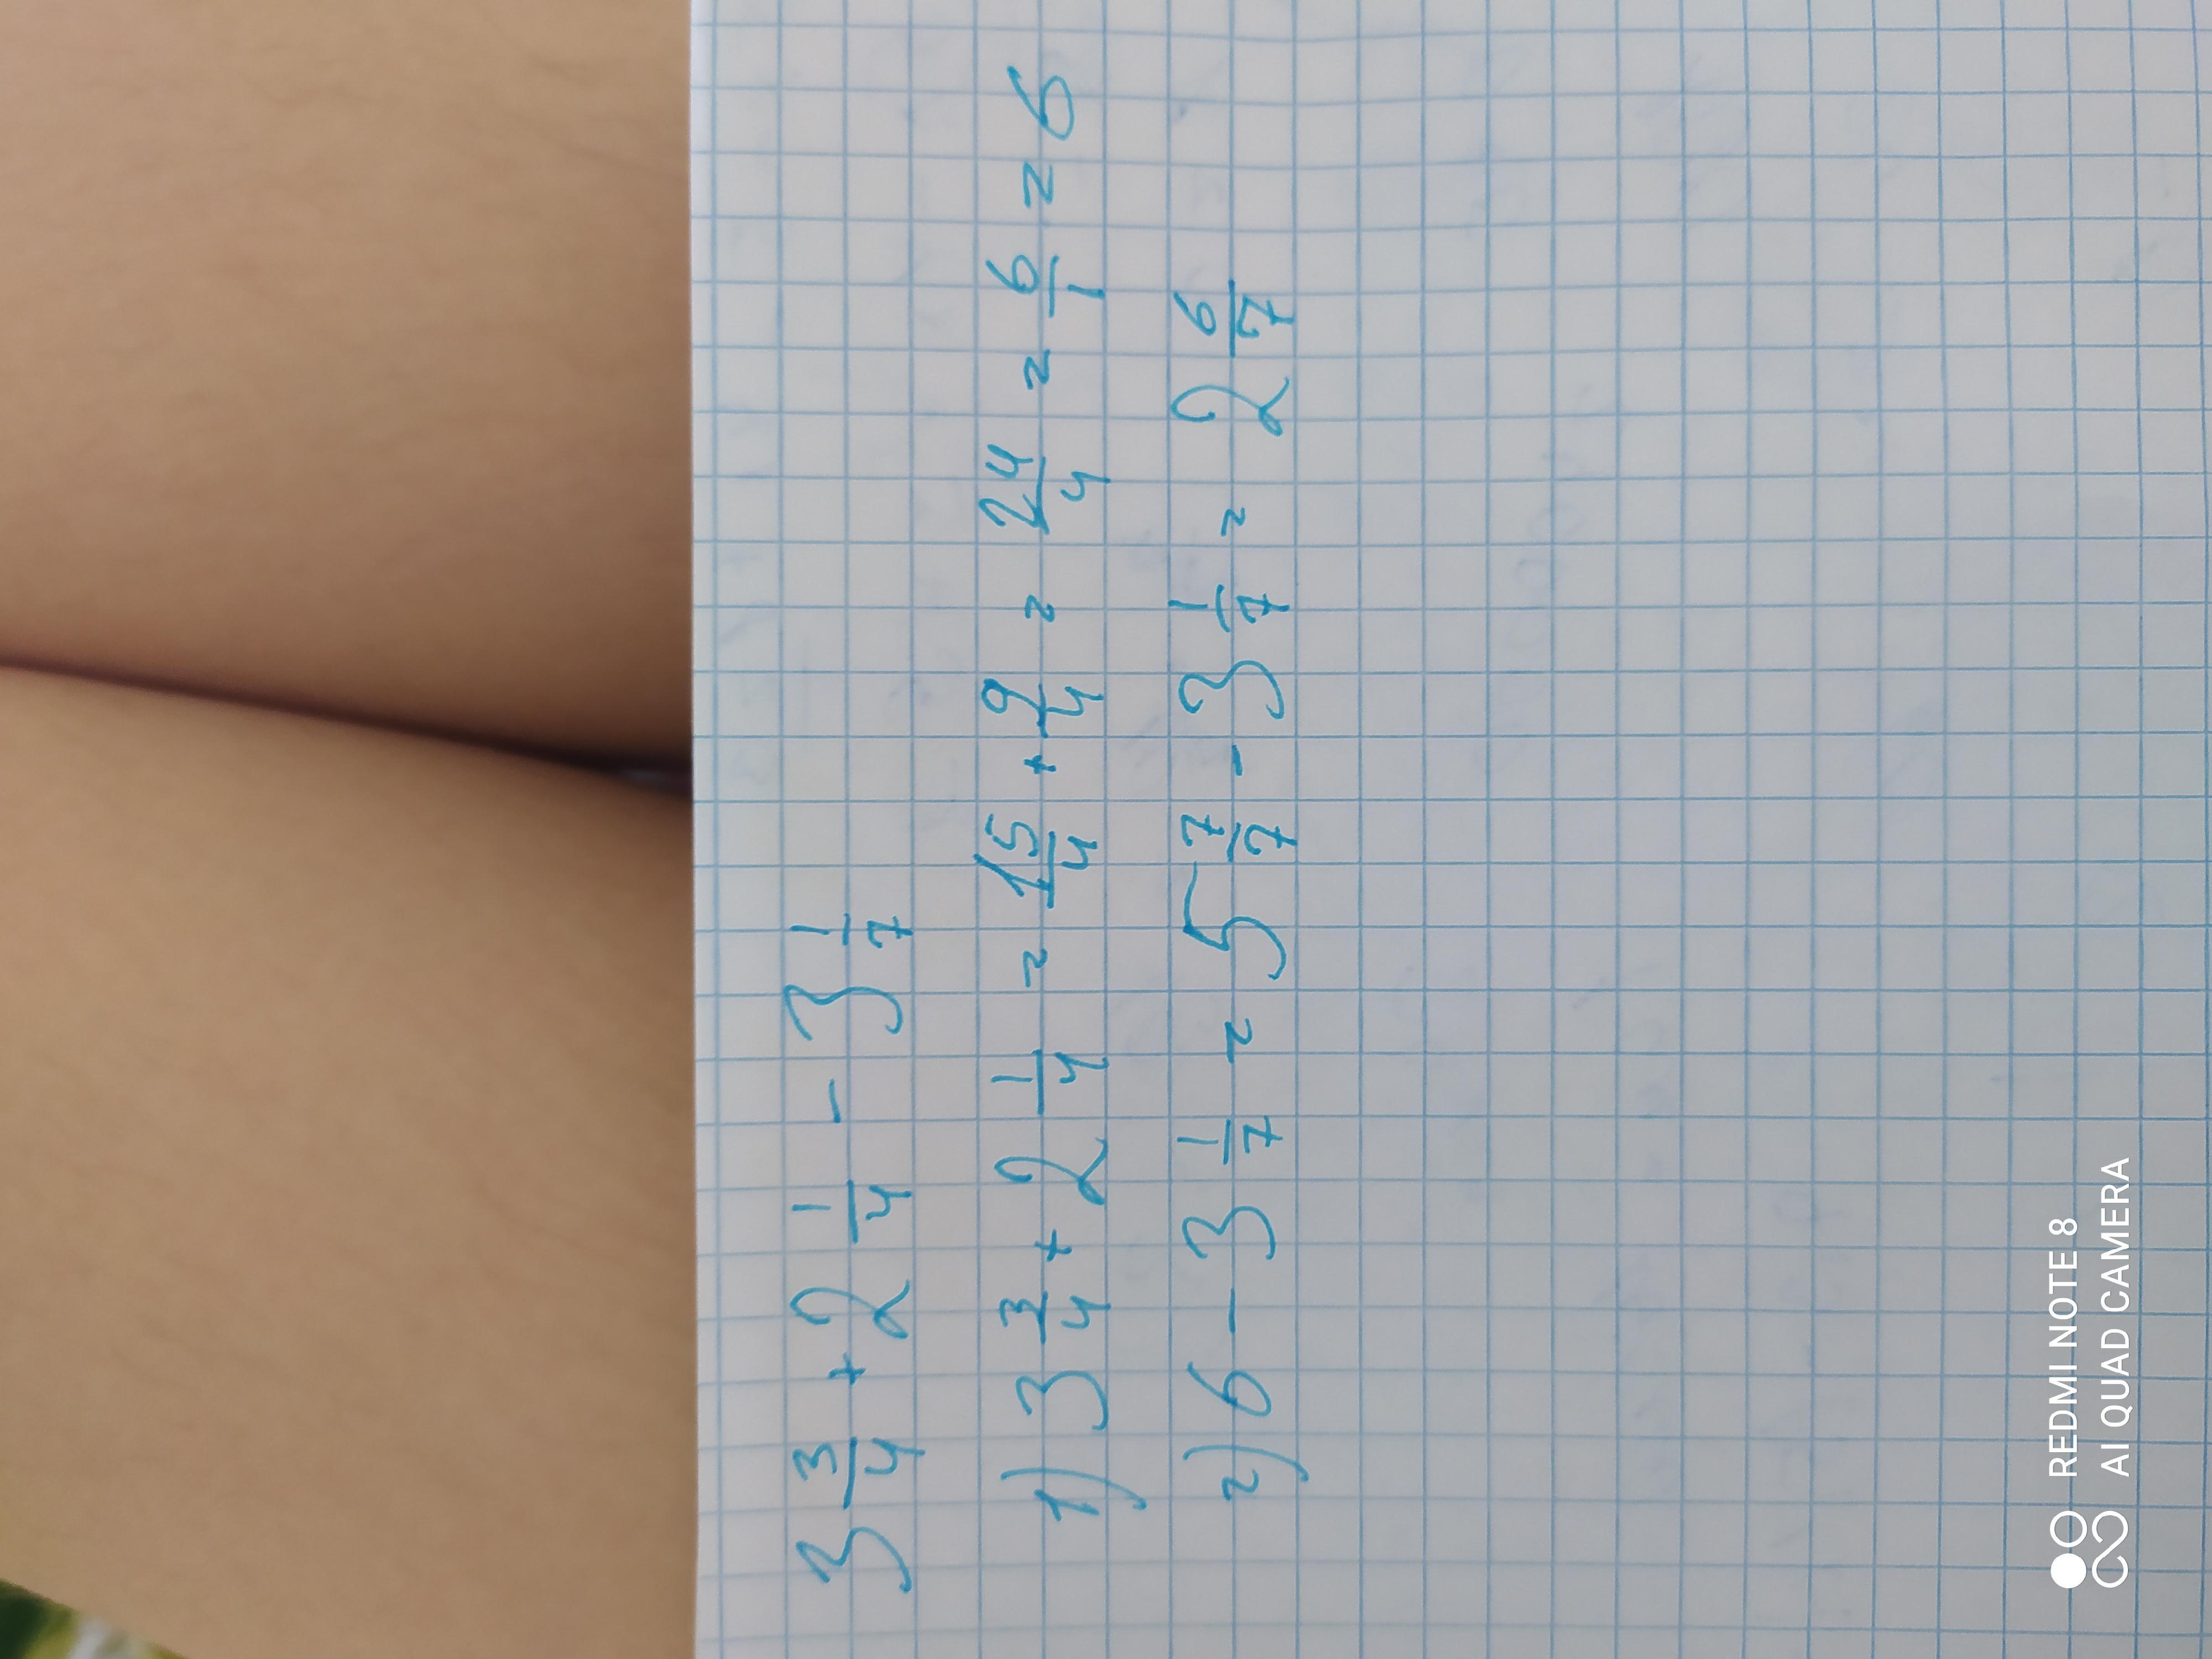 3 3/4 + 2 1/4 - 3 1/7
1) 3 3/4 + 2 1/4 = 15/4 + 9/4 = 24/4 = 6/1 = 6
2) 6 - 3 1/7 = 5 7/7 - 3 1/7 = 2 6/7
REDMI NOTE 8
AI QUAD CAMERA